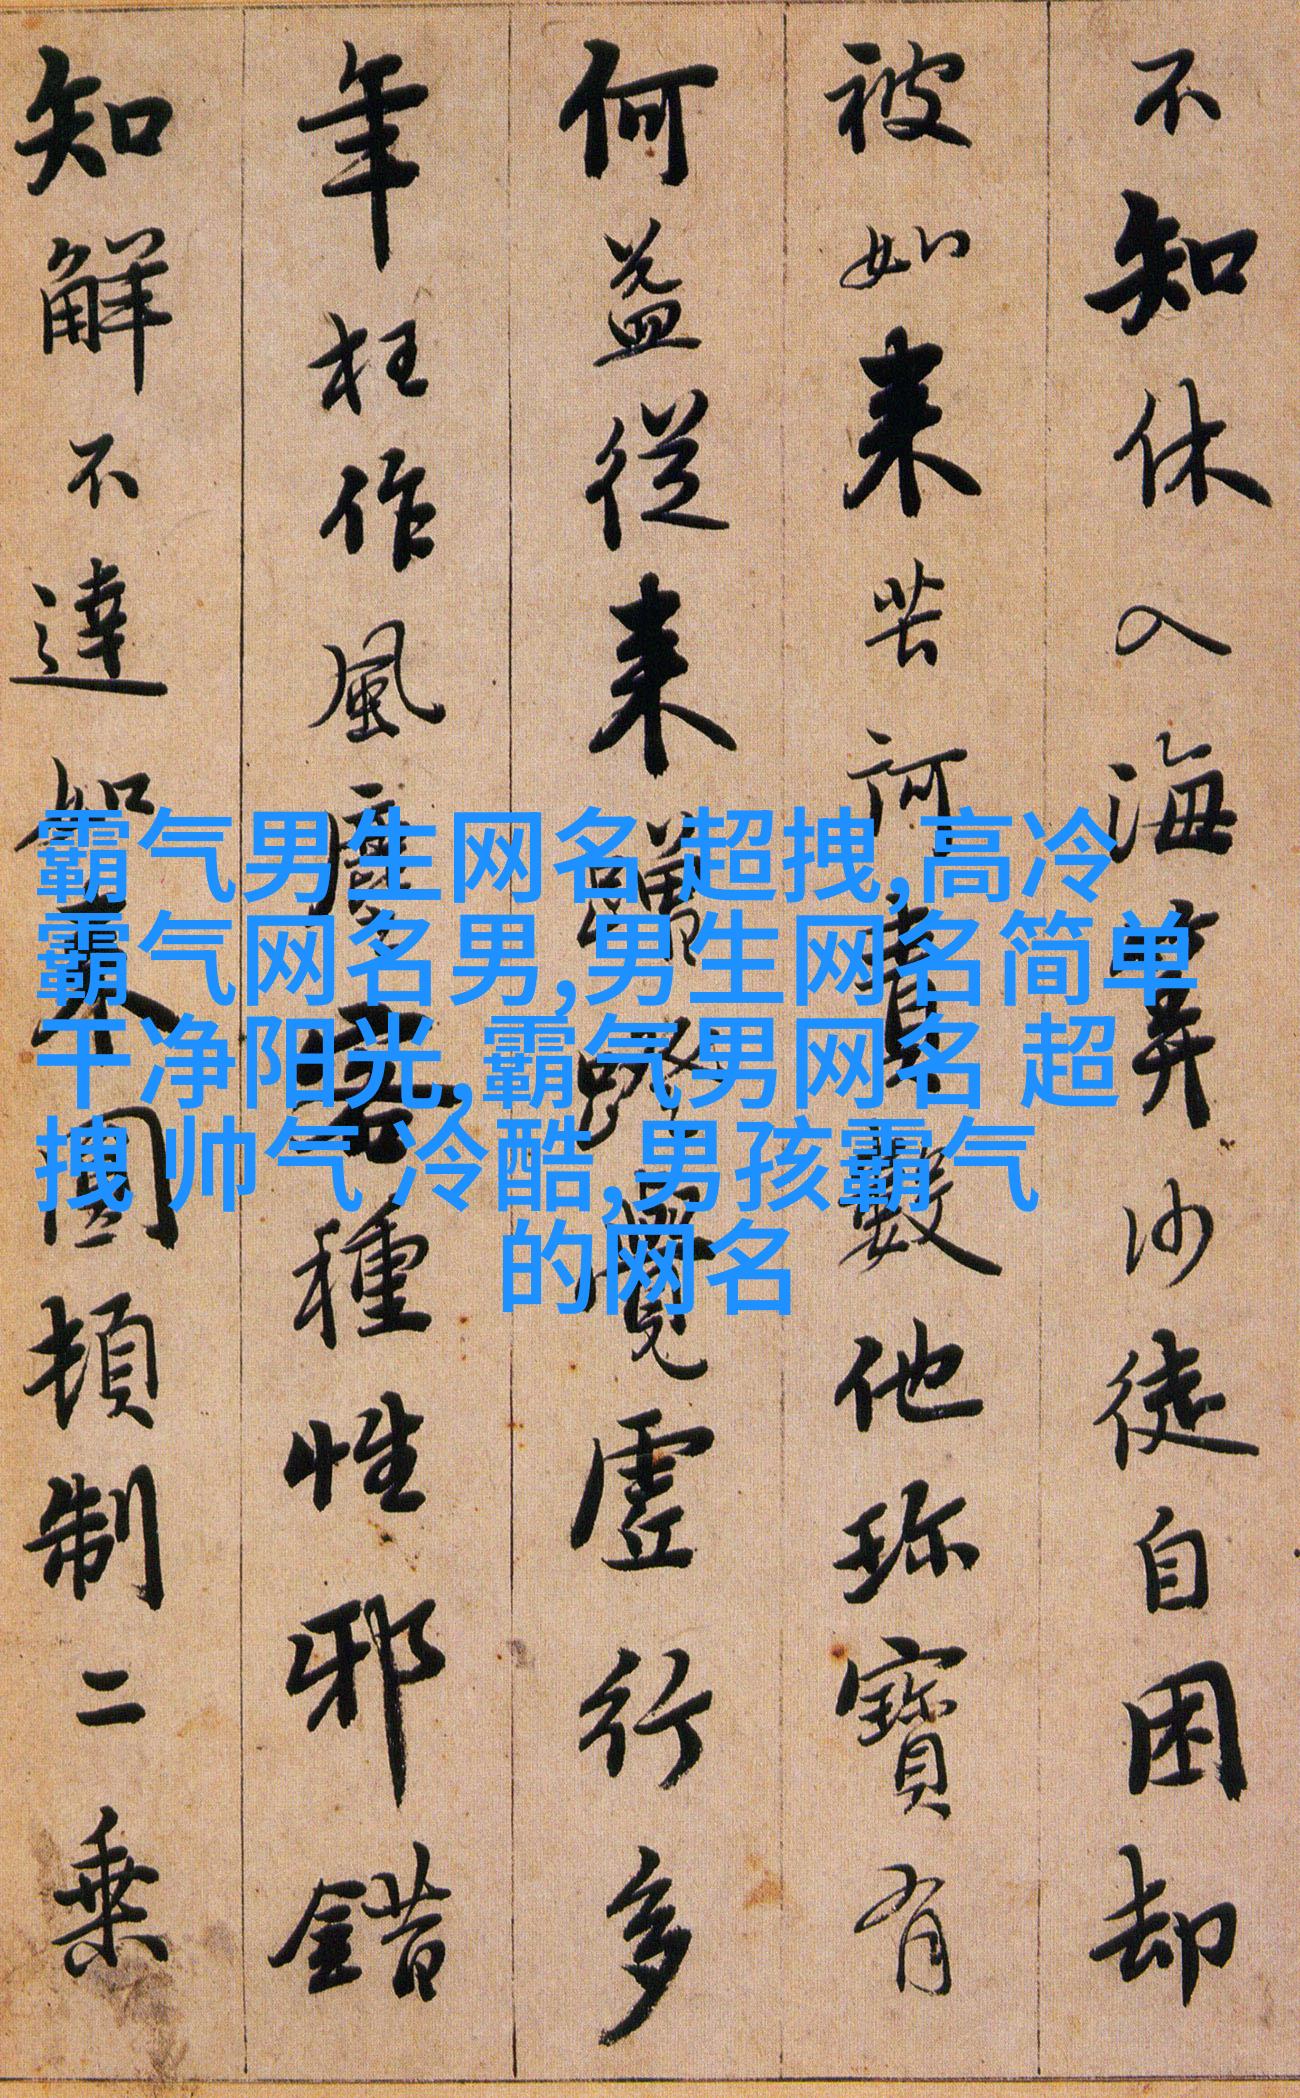 不知休入海算沙徒自困却
被如来苦诃責數他珍寶有
何益從来蹭蹬覺虛行多
年枉作風塵客種性邪錯
知解不達如来圓頓制二乗
霸气男生网名 超拽,高冷
霸气网名男,男生网名简单
干净阳光,霸气男网名 超
拽 帅气 冷酷,男孩霸气
的网名